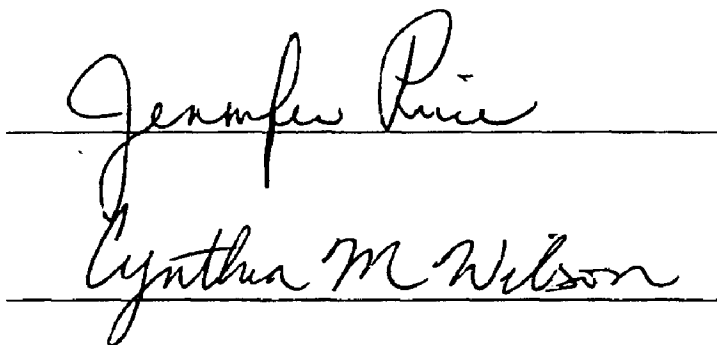 Jennifer Price
Cynthia M Wilson